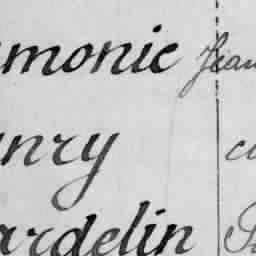 amonic Jean
enry
ardelin